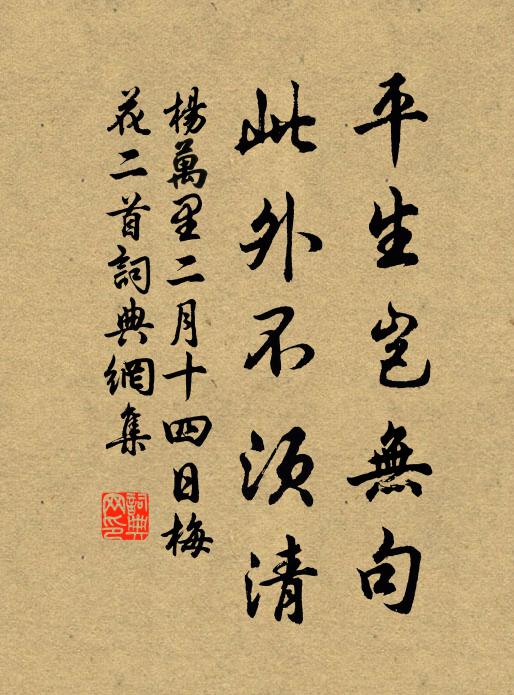 平生豈無句
此外不須清
楊萬里二月十四日梅
花二首詞典網集
詞典網印